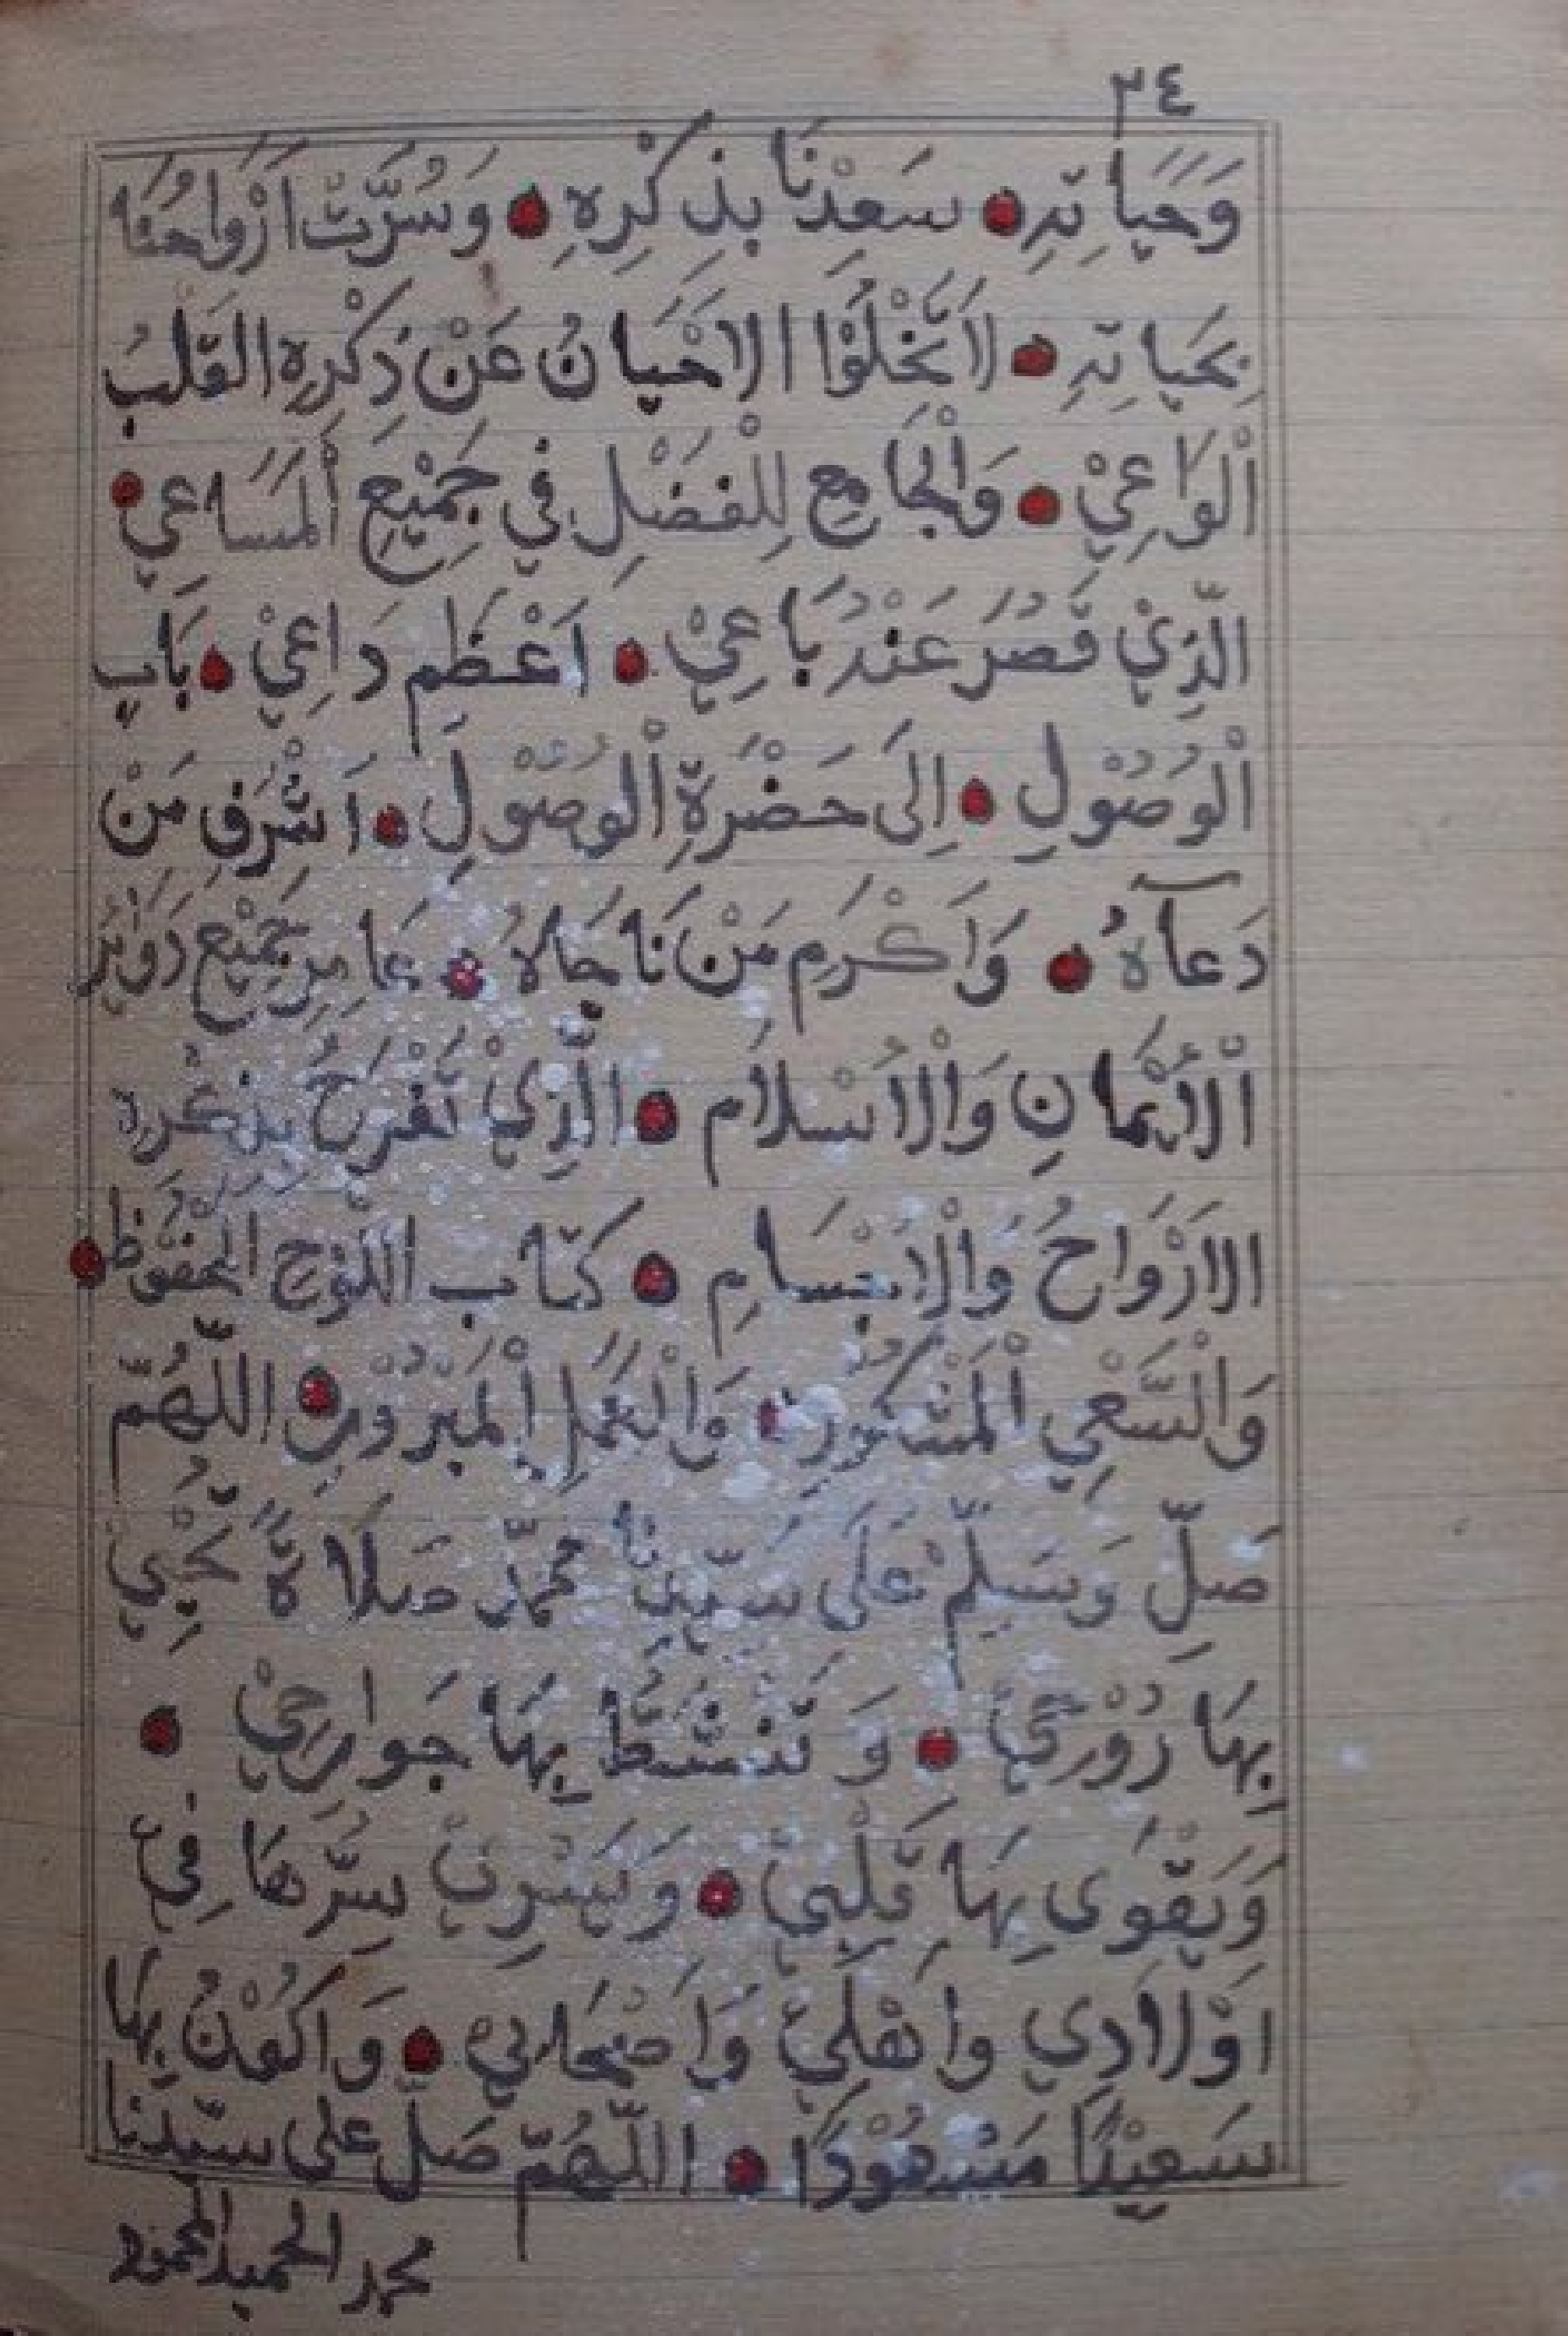 ٢٤
وَحَيَاتِهِ • سَعِدْنَا بِذِكْرِهِ • وَسُرَّتْ اَرْوَاحُنَا
بِحَيَاتِهِ • لَا تَخْلُوْا الاَحْيَانُ عَنْ ذِكْرِهِ القَلبُ
اْلوَاعِيْ • وَاْلجَامِعِ لِلْفَضْلِ فِي جَمِيْعِ اْلمَسَاعِي •
الَّذِيْ قَصُرَ عَنْدُ بَاعِيْ • اَعْظَمِ دَاعِيْ • بَابِ
اْلوُصُوْلِ • اِلَى حَضْرَةِ اْلوُصُوْلِ • اَشْرَفِ مَنْ
دَعآهُ • وَاَكْرَمِ مَنْ نَاجَاهُ • عَامِرِ جَمِيْعِ دَوَائِرِ
اْلاِيْمَانِ وَاْلاِسْلاَمِ • الَّذِيْ تَفْرَحُ بِذِكْرِهِ
الاَرْوَاحُ وَاْلاَجْسَامِ • كِتَابِ اللَّوْحِ المَحْفُوْظِ •
وَالْسَّعْيِ اْلمَشْكُوْرِ • وَاْلعَمَلِ اْلمَبْرُوْرِ • اللّهُمَّ
صَلِّ وَسَلِّمْ عَلَى سَيِّدِنَا محمَّد صَلَاةً تُحْيِي
بِهَا رُوْحِيْ • وَتَنْشَطُ بِهَا جَوارِحِيْ •
وَيَقْوَى بِهَا قَلْبِيْ • وَيَسْرِيْ سِرُّهَا فِيَّ
اَوْلَادِي وَاَهْلِيْ وَاَصْحَابِيْ • وَاَكُوْنُ بِهَا
سَعِيْدًا مَسْعُوْدًا • اللّهُمَّ صَلِّ على سيّدنا
محمد الحميد المحمود